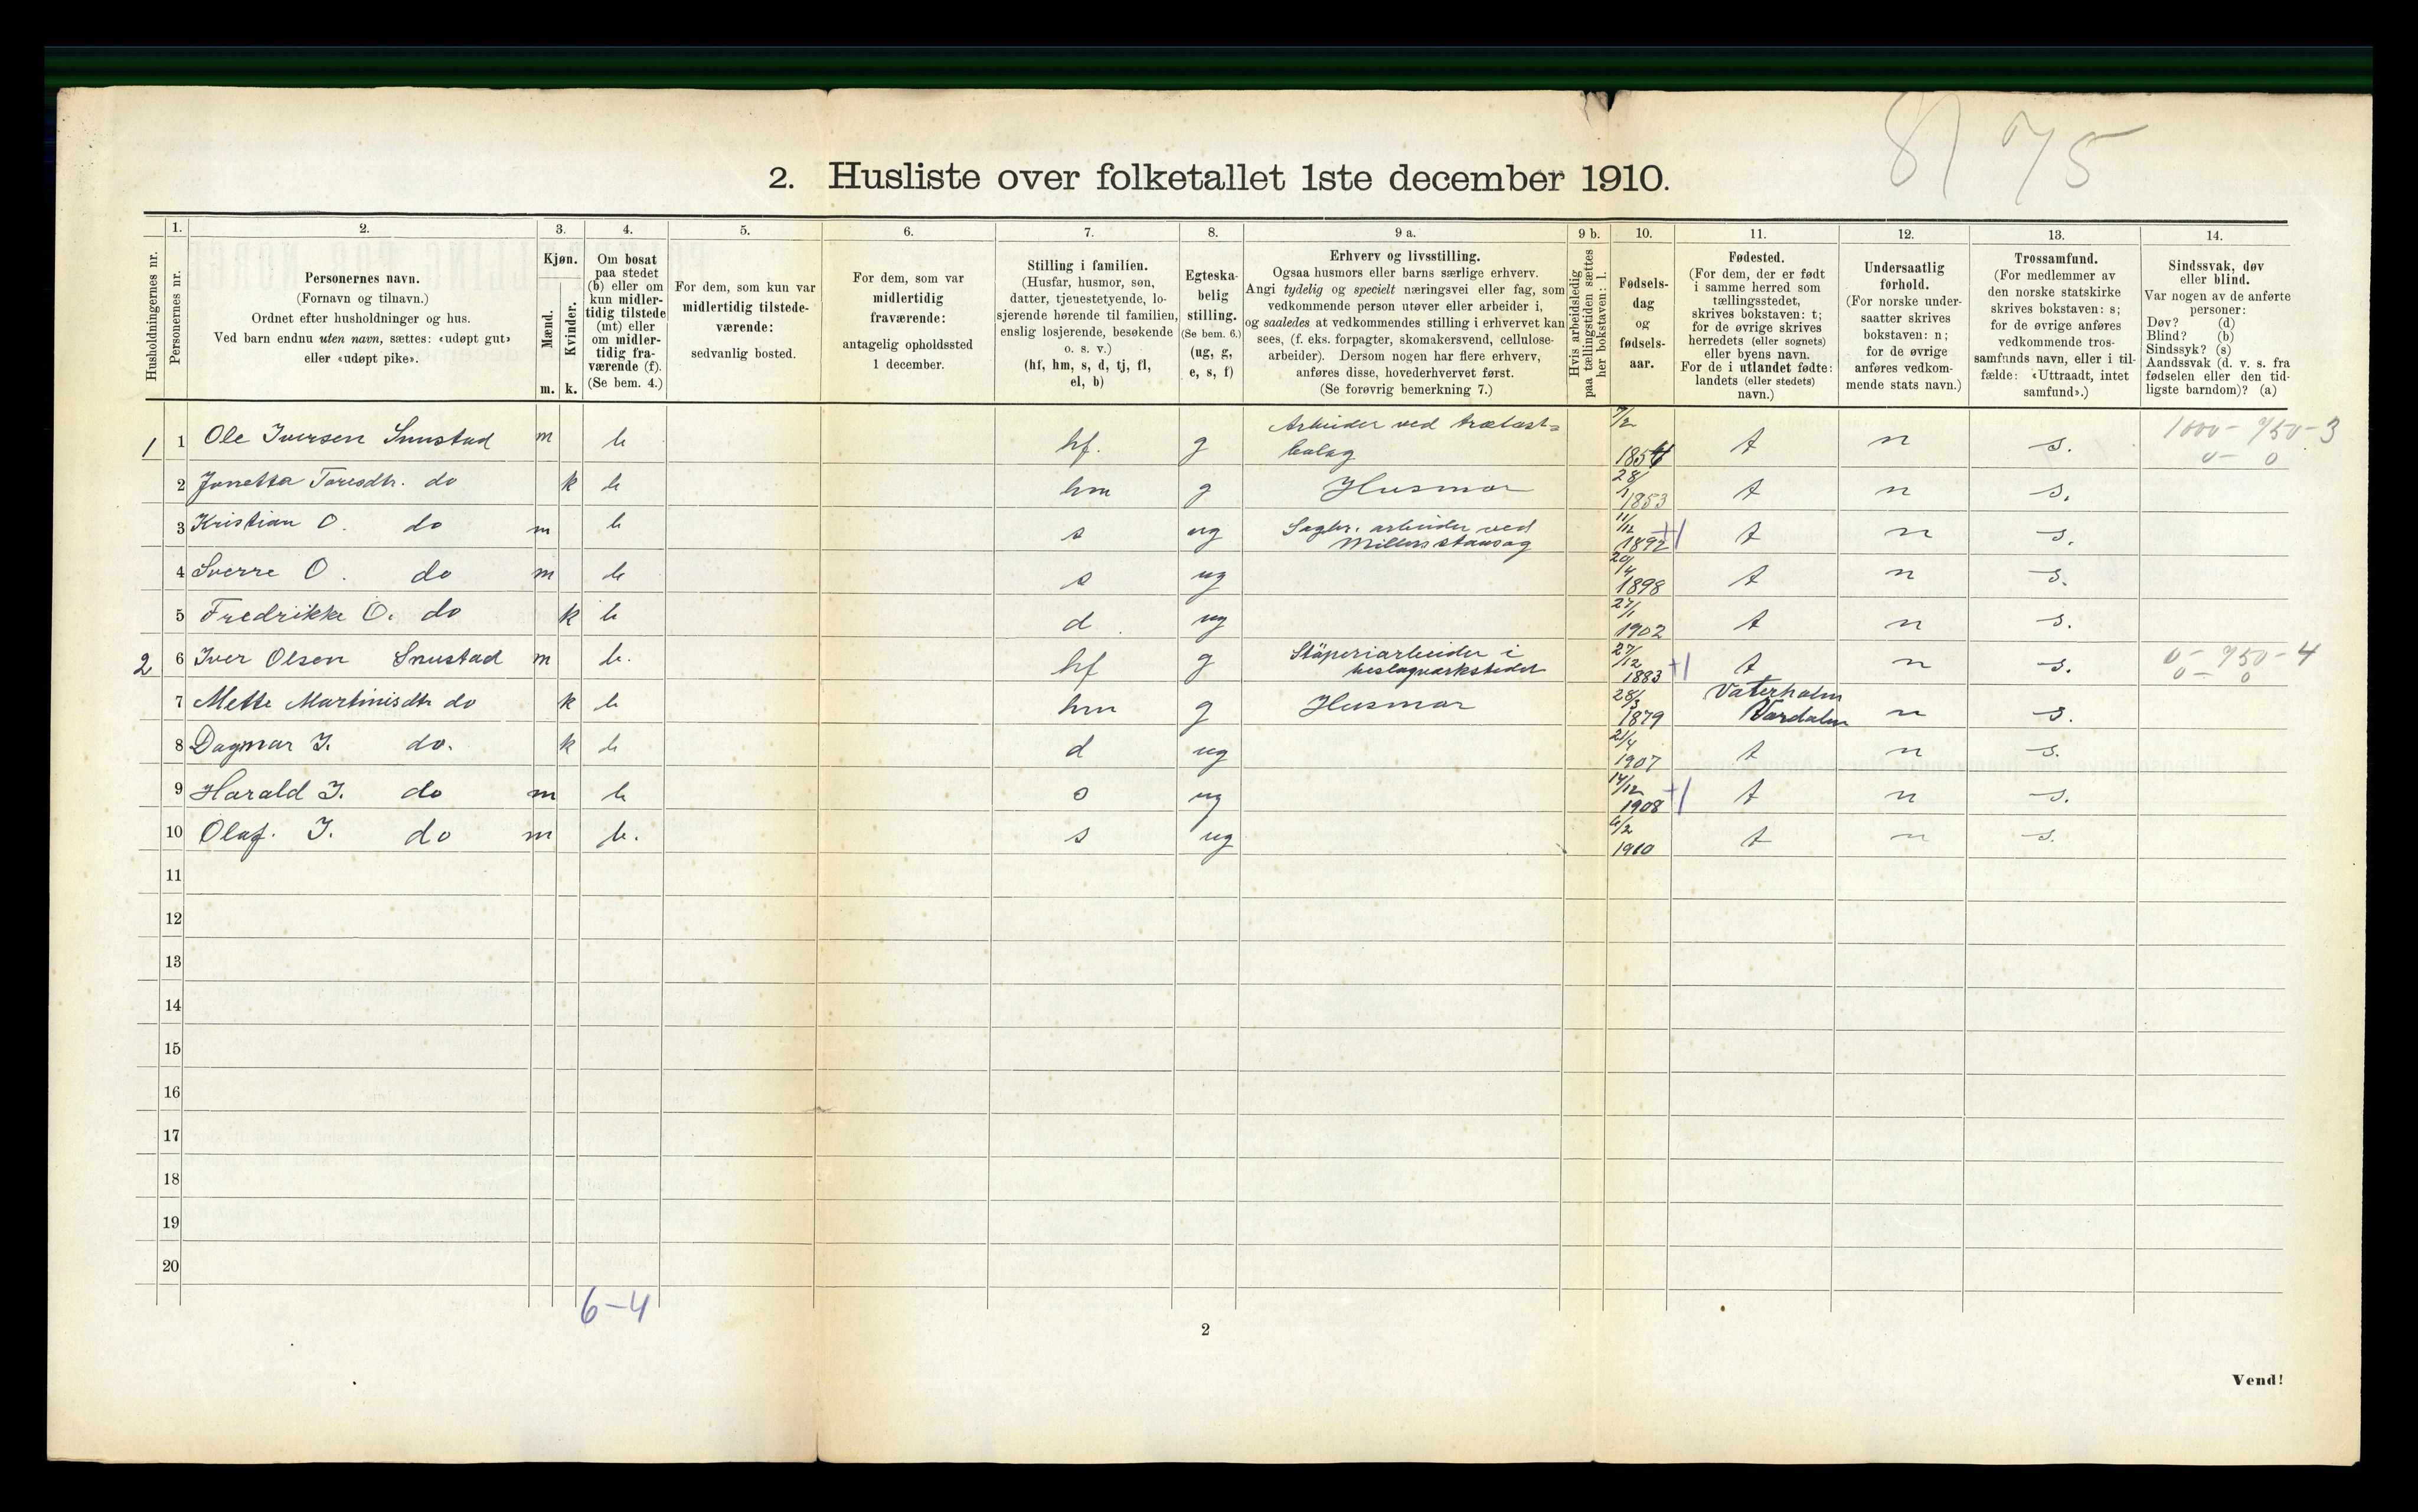 8) 75
2. Husliste over folketallet 1ste december 1910.
Husholdningernes nr.
1.
Personernes nr.
2.
Personernes navn.
(Fornavn og tilnavn.)
Ordnet efter husholdninger og hus.
Ved barn endnu uten navn, sættes: «udøpt gut»
eller «udøpt pike».
3.
Kjøn.
Mænd.
Kvinder.
m. k.
4.
Om bosat
paa stedet
(b) eller om
kun midler-
tidig tilstede
(mt) eller
om midler-
tidig fra-
værende (f).
(Se bem. 4.)
5.
For dem, som kun var
midlertidig tilstede-
værende:
sedvanlig bosted.
6.
For dem, som var
midlertidig
fraværende:
antagelig opholdssted
1 december.
7.
Stilling i familien.
(Husfar, husmor, søn,
datter, tjenestetyende, lo-
sjerende hørende til familien,
enslig losjerende, besøkende
o. s. v.)
(hf, hm, s, d, tj, fl,
el, b)
8.
Egteska-
belig
stilling.
(Se bem. 6.)
(ug, g,
e, s, f)
9 a.
Erhverv og livsstilling.
Ogsaa husmors eller barns særlige erhverv.
Angi tydelig og specielt næringsvei eller fag, som
vedkommende person utøver eller arbeider i,
og saaledes at vedkommendes stilling i erhvervet kan
sees, (f. eks. forpagter, skomakersvend, cellulose-
arbeider). Dersom nogen har flere erhverv,
anføres disse, hovederhvervet først.
(Se forøvrig bemerkning 7.)
9 b.
Hvis arbeidsledig
paa tællingstiden sættes
her bokstaven: l.
10.
Fødsels-
dag
og
fødsels-
aar.
11.
Fødested.
(For dem, der er født
i samme herred som
tællingsstedet,
skrives bokstaven: t;
for de øvrige skrives
herredets (eller sognets)
eller byens navn.
For de i utlandet fødte:
landets (eller stedets)
navn.)
12.
Undersaatlig
forhold.
(For norske under-
saatter skrives
bokstaven: n;
for de øvrige
anføres vedkom-
mende stats navn.)
13.
Trossamfund.
(For medlemmer av
den norske statskirke
skrives bokstaven: s;
for de øvrige anføres
vedkommende tros-
samfunds navn, eller i til-
fælde: «Uttraadt, intet
samfund».)
14.
Sindssvak, døv
eller blind.
Var nogen av de anførte
personer:
Døv? (d)
Blind? (b)
Sindssyk? (s)
Aandssvak (d. v. s. fra
fødselen eller den tid-
ligste barndom)? (a)
1 1 Ole Iversen Snustad m b hf. g Arbeider ved trælast=
7/2 1854 t n s. 1000 - 950 - 3
0 - 0
2 Jonetta Toresdtr. do k b hm g Husmor 28/1 1853 t n s.
3 Kristian O. do m b s ug Sagbr. arbeider ved
11/12 1892 +1 t n s.
4 Sverre O. do m b s ug 20/4 1898 t n s.
5 Fredrikke O. do k b d ug 27/1 1902 t n s.
2 6 Iver Olsen Snustad m b. hf g Stöperiarbeider i
beslagverkstedet 27/12 1883 +1 t n s. 0 - 950 - 4
0 - 0
7 Mette Martinisdtr do k b hm g Husmor 28/3 1879 Vaterholm
Vardalen n s.
8 Dagmar I. do. k b d ug 21/4 1907 t n s.
9 Harald I. do m b s ug 14/12 1908 +1 t n s.
10 Olaf. I. do m b. s ug 6/2 1910 t n s.
11
12
13
14
15
16
17
18
19
20
6-4
2
Vend!